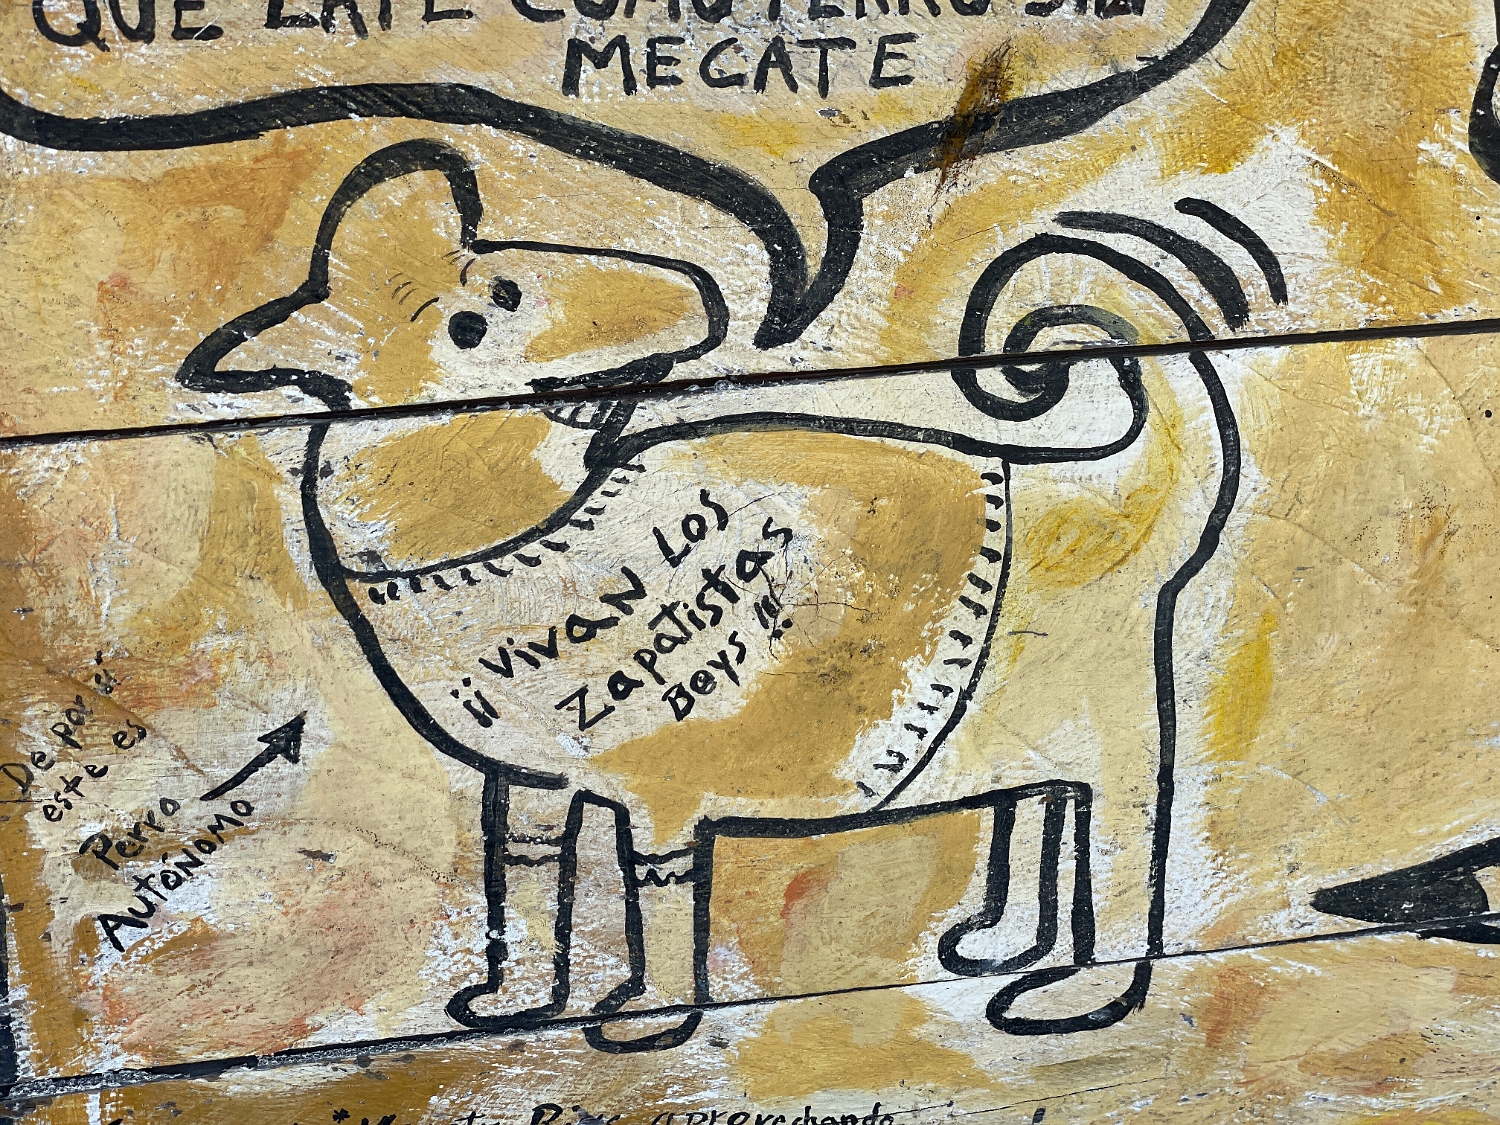 QUE LATE COMO PERRO SIN
MECATE
¡¡ViVAN LOS
ZapatistAS
Beys!!
De por sí
este es
Perro
AutóNOMO
aprovechando